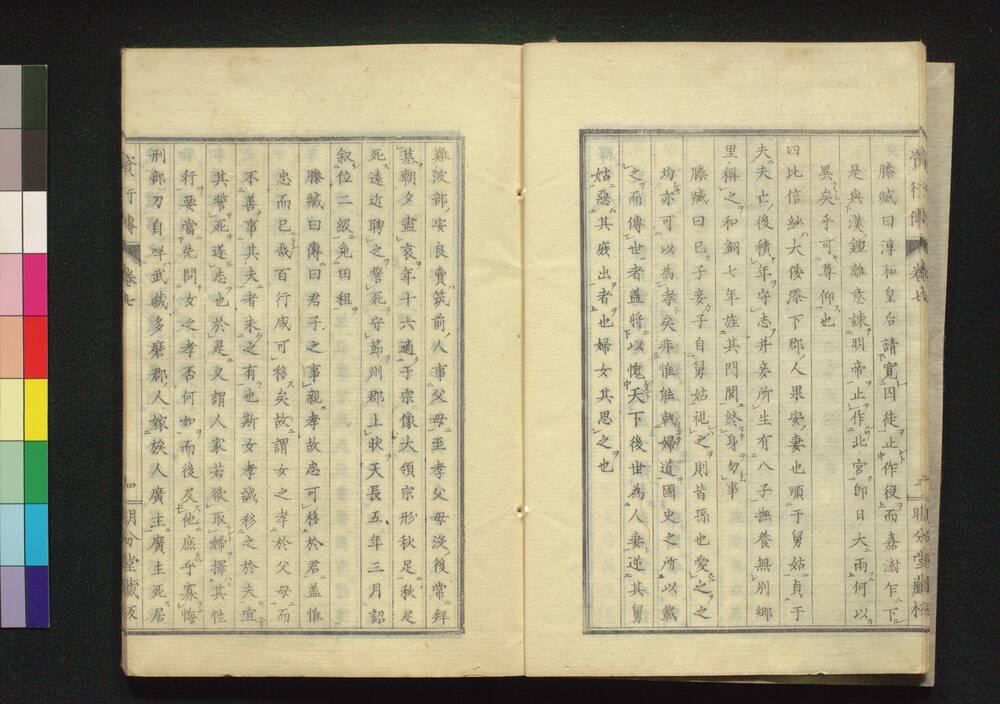 滕臧曰淳和皇后請寬囚徒止作役而嘉澍乍下
是與漢鍾離意諫明帝止作北宮卽日大雨何以
異矣乎可尊仰也
四比信紗大倭添下郡人果安妻也順于舅姑貞于
夫夫亡後積年守志并妾所生有八子撫養無別鄉
里稱之和銅七年旌其門閭終身勿事
滕臧曰己子妾子自舅姑視之則皆孫也愛之之
均亦可以為孝矣非惟能執婦道國史之所以載
之而傳世者蓋將以愧天下後世為人妻逆其舅
姑惡其庶出者也婦女其思之也
難波部安良賣筑前人事父母至孝父母沒後常拜
墓朝夕盡哀年十六適于宗像大領宗形秋足秋足
死遠近聘之誓死守節州郡上狀天長五年三月詔
叙位二級免田租
滕臧曰傳曰君子之事親孝故忠可移於君蓋惟
忠而已哉百行咸可移矣故謂女之孝於父母而
不善事其夫者未之有也斯女孝誠移之於夫宜
其誓死遂志也於是又謂人家若欲取婦擇其性
行要當先問女之孝否何如而後及他庶乎寡悔
刑部刀自咩武藏多磨郡人嫁族人廣主廣主死居
資行傳
卷七
四
明分堂藏板